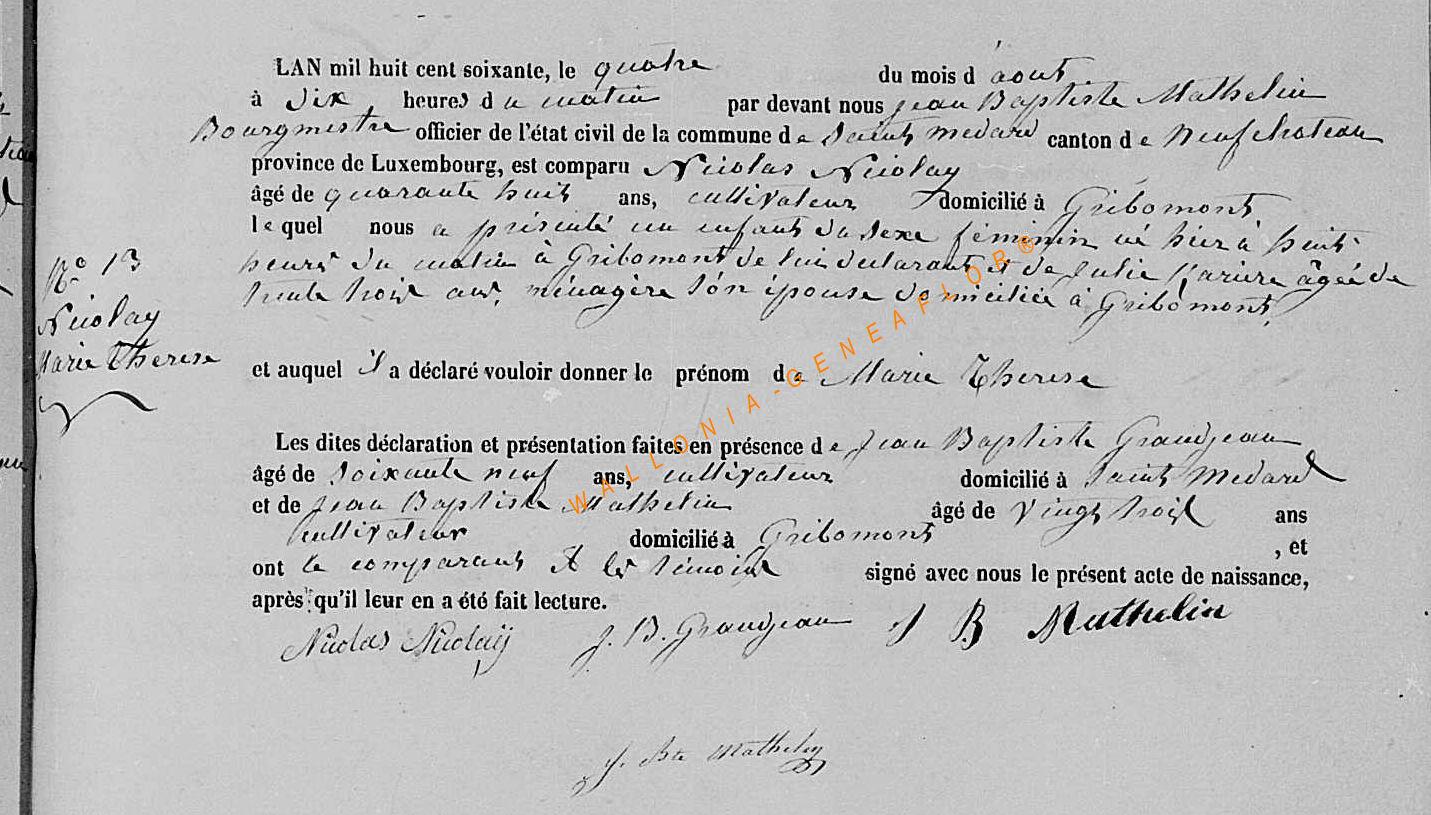 LAN mil huit cent soixante, le quatre du mois d'aout
à dix heures du matin par devant nous jean Baptiste Mathelin
Bourgmestre officier de l'état civil de la commune de Saint medard canton de Neufchateau
province de Luxembourg, est comparu Nicolas Nicolay
âgé de quarante huit ans, cultivateur domicilié à Gribomont,
lequel nous a présenté un enfant du sexe féminin né hier à huit
heures du matin à Gribomont de lui déclarant et de Julie âgée de
trente trois ans, ménagère son épouse domiciliée à Gribomont,
N° 13
Nicolay
Marie Therese
et auquel il a déclaré vouloir donner le prénom de Marie Therese
Les dites déclaration et présentation faites en présence de Jean Baptiste Grandjean
âgé de soixante neuf ans, cultivateur domicilié à Saint Medard
et de Jean Baptiste Mathelin âgé de vingt trois ans
cultivateur domicilié à Gribomont , et
ont le comparant et les témoins signé avec nous le présent acte de naissance,
après qu'il leur en a été fait lecture.
Nicolas Nicolaÿ J. B. Grandjean J B Mathelin
J. Bte Mathelin
WALLONIA-GENEAFLOR®